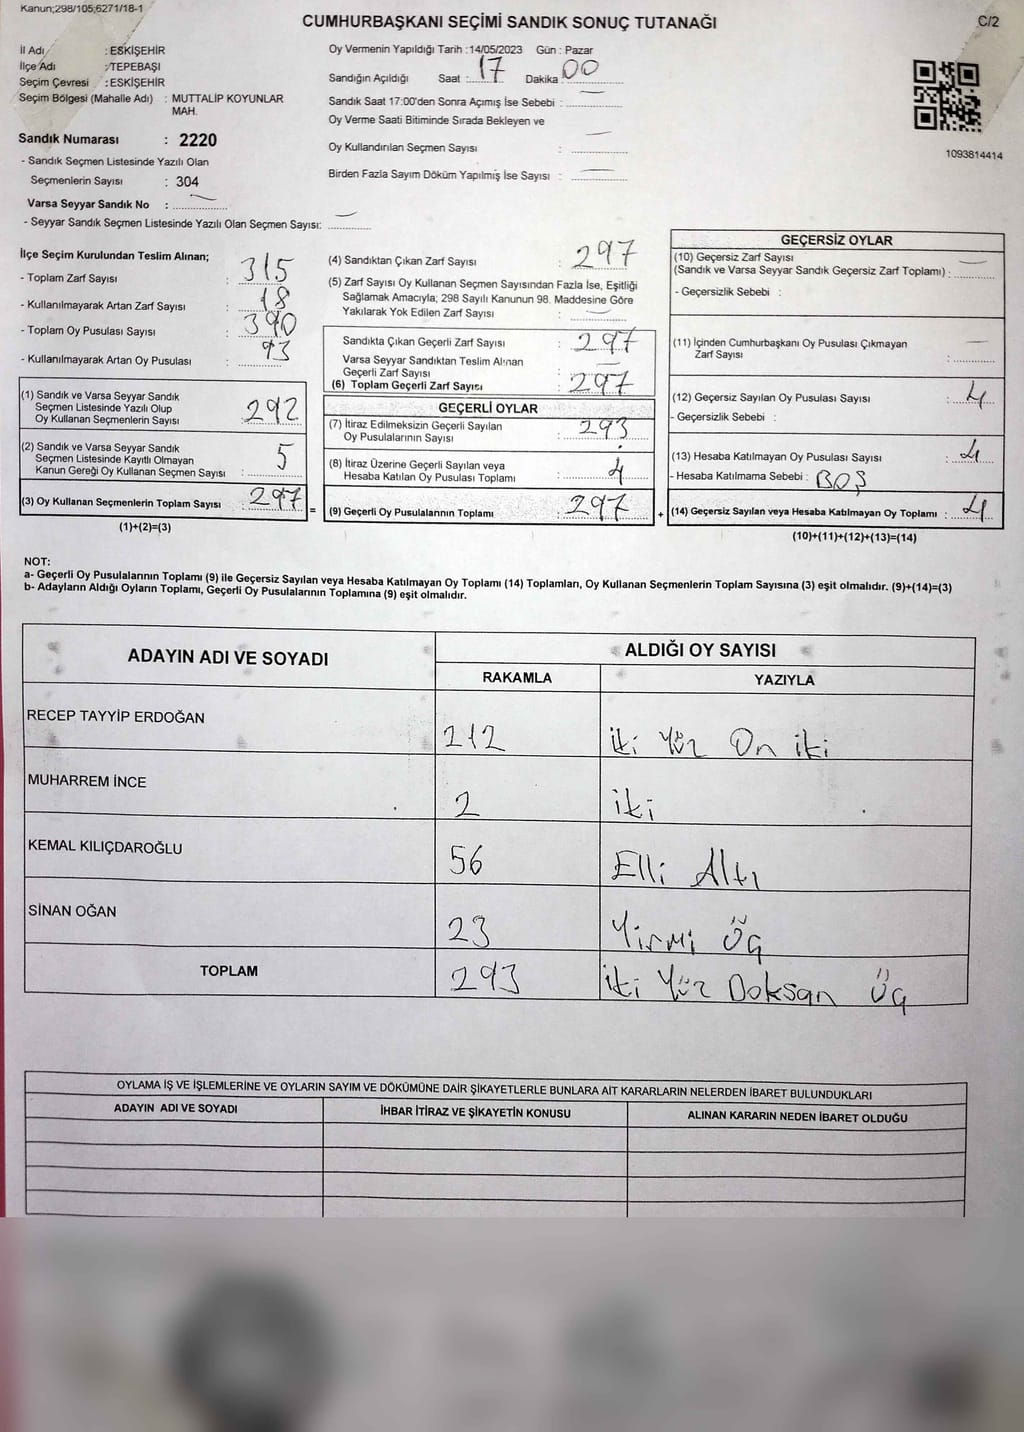 Kanun;298/105;6271/18-1
CUMHURBAŞKANI SEÇİMİ SANDIK SONUÇ TUTANAĞI
C/2
İl Adı : ESKİŞEHİR
İlçe Adı : TEPEBAŞI
Seçim Çevresi : ESKİŞEHİR
Seçim Bölgesi (Mahalle Adı) : MUTTALIP KOYUNLAR
MAH.
Sandık Numarası : 2220
- Sandık Seçmen Listesinde Yazılı Olan
Seçmenlerin Sayısı : 304
Varsa Seyyar Sandık No :
- Seyyar Sandık Seçmen Listesinde Yazılı Olan Seçmen Sayısı:
Oy Vermenin Yapıldığı Tarih :14/05/2023 Gün : Pazar
Sandığın Açıldığı Saat : 17 Dakika : 00
Sandık Saat 17:00'den Sonra Açımış İse Sebebi :
Oy Verme Saati Bitiminde Sırada Bekleyen ve
Oy Kullandırılan Seçmen Sayısı :
Birden Fazla Sayım Döküm Yapılmış İse Sayısı :
1093814414
İlçe Seçim Kurulundan Teslim Alınan;
- Toplam Zarf Sayısı : 315
- Kullanılmayarak Artan Zarf Sayısı : 18
- Toplam Oy Pusulası Sayısı : 390
- Kullanılmayarak Artan Oy Pusulası : 93
(1) Sandık ve Varsa Seyyar Sandık
Seçmen Listesinde Yazılı Olup
Oy Kullanan Seçmenlerin Sayısı : 292
(2) Sandık ve Varsa Seyyar Sandık
Seçmen Listesinde Kayıtlı Olmayan
Kanun Gereği Oy Kullanan Seçmen Sayısı : 5
(3) Oy Kullanan Seçmenlerin Toplam Sayısı : 297 =
(1)+(2)=(3)
(4) Sandıktan Çıkan Zarf Sayısı : 297
(5) Zarf Sayısı Oy Kullanan Seçmen Sayısından Fazla İse, Eşitliği
Sağlamak Amacıyla; 298 Sayılı Kanunun 98. Maddesine Göre
Yakılarak Yok Edilen Zarf Sayısı :
Sandıkta Çıkan Geçerli Zarf Sayısı : 297
Varsa Seyyar Sandıktan Teslim Alınan
Geçerli Zarf Sayısı :
(6) Toplam Geçerli Zarf Sayısı : 297
GEÇERLİ OYLAR
(7) İtiraz Edilmeksizin Geçerli Sayılan
Oy Pusulalarının Sayısı : 293
(8) İtiraz Üzerine Geçerli Sayılan veya
Hesaba Katılan Oy Pusulası Toplamı : 4
(9) Geçerli Oy Pusulalarının Toplamı : 297 +
GEÇERSİZ OYLAR
(10) Geçersiz Zarf Sayısı
(Sandık ve Varsa Seyyar Sandık Geçersiz Zarf Toplamı) :
- Geçersizlik Sebebi :
(11) İçinden Cumhurbaşkanı Oy Pusulası Çıkmayan
Zarf Sayısı :
(12) Geçersiz Sayılan Oy Pusulası Sayısı : 4
- Geçersizlik Sebebi :
(13) Hesaba Katılmayan Oy Pusulası Sayısı : 4
- Hesaba Katılmama Sebebi : BOŞ
(14) Geçersiz Sayılan veya Hesaba Katılmayan Oy Toplamı : 4
(10)+(11)+(12)+(13)=(14)
NOT:
a- Geçerli Oy Pusulalarının Toplamı (9) ile Geçersiz Sayılan veya Hesaba Katılmayan Oy Toplamı (14) Toplamları, Oy Kullanan Seçmenlerin Toplam Sayısına (3) eşit olmalıdır. (9)+(14)=(3)
b- Adayların Aldığı Oyların Toplamı, Geçerli Oy Pusulalarının Toplamına (9) eşit olmalıdır.
ADAYIN ADI VE SOYADI
ALDIĞI OY SAYISI
RAKAMLA YAZIYLA
RECEP TAYYİP ERDOĞAN 212 iki Yüz On iki
MUHARREM İNCE 2 iki
KEMAL KILIÇDAROĞLU 56 Elli Altı
SİNAN OĞAN 23 Yirmi Üç
TOPLAM 293 iki Yüz Doksan Üç
OYLAMA İŞ VE İŞLEMLERİNE VE OYLARIN SAYIM VE DÖKÜMÜNE DAİR ŞİKAYETLERLE BUNLARA AİT KARARLARIN NELERDEN İBARET BULUNDUKLARI
ADAYIN ADI VE SOYADI İHBAR İTİRAZ VE ŞİKAYETİN KONUSU ALINAN KARARIN NEDEN İBARET OLDUĞU